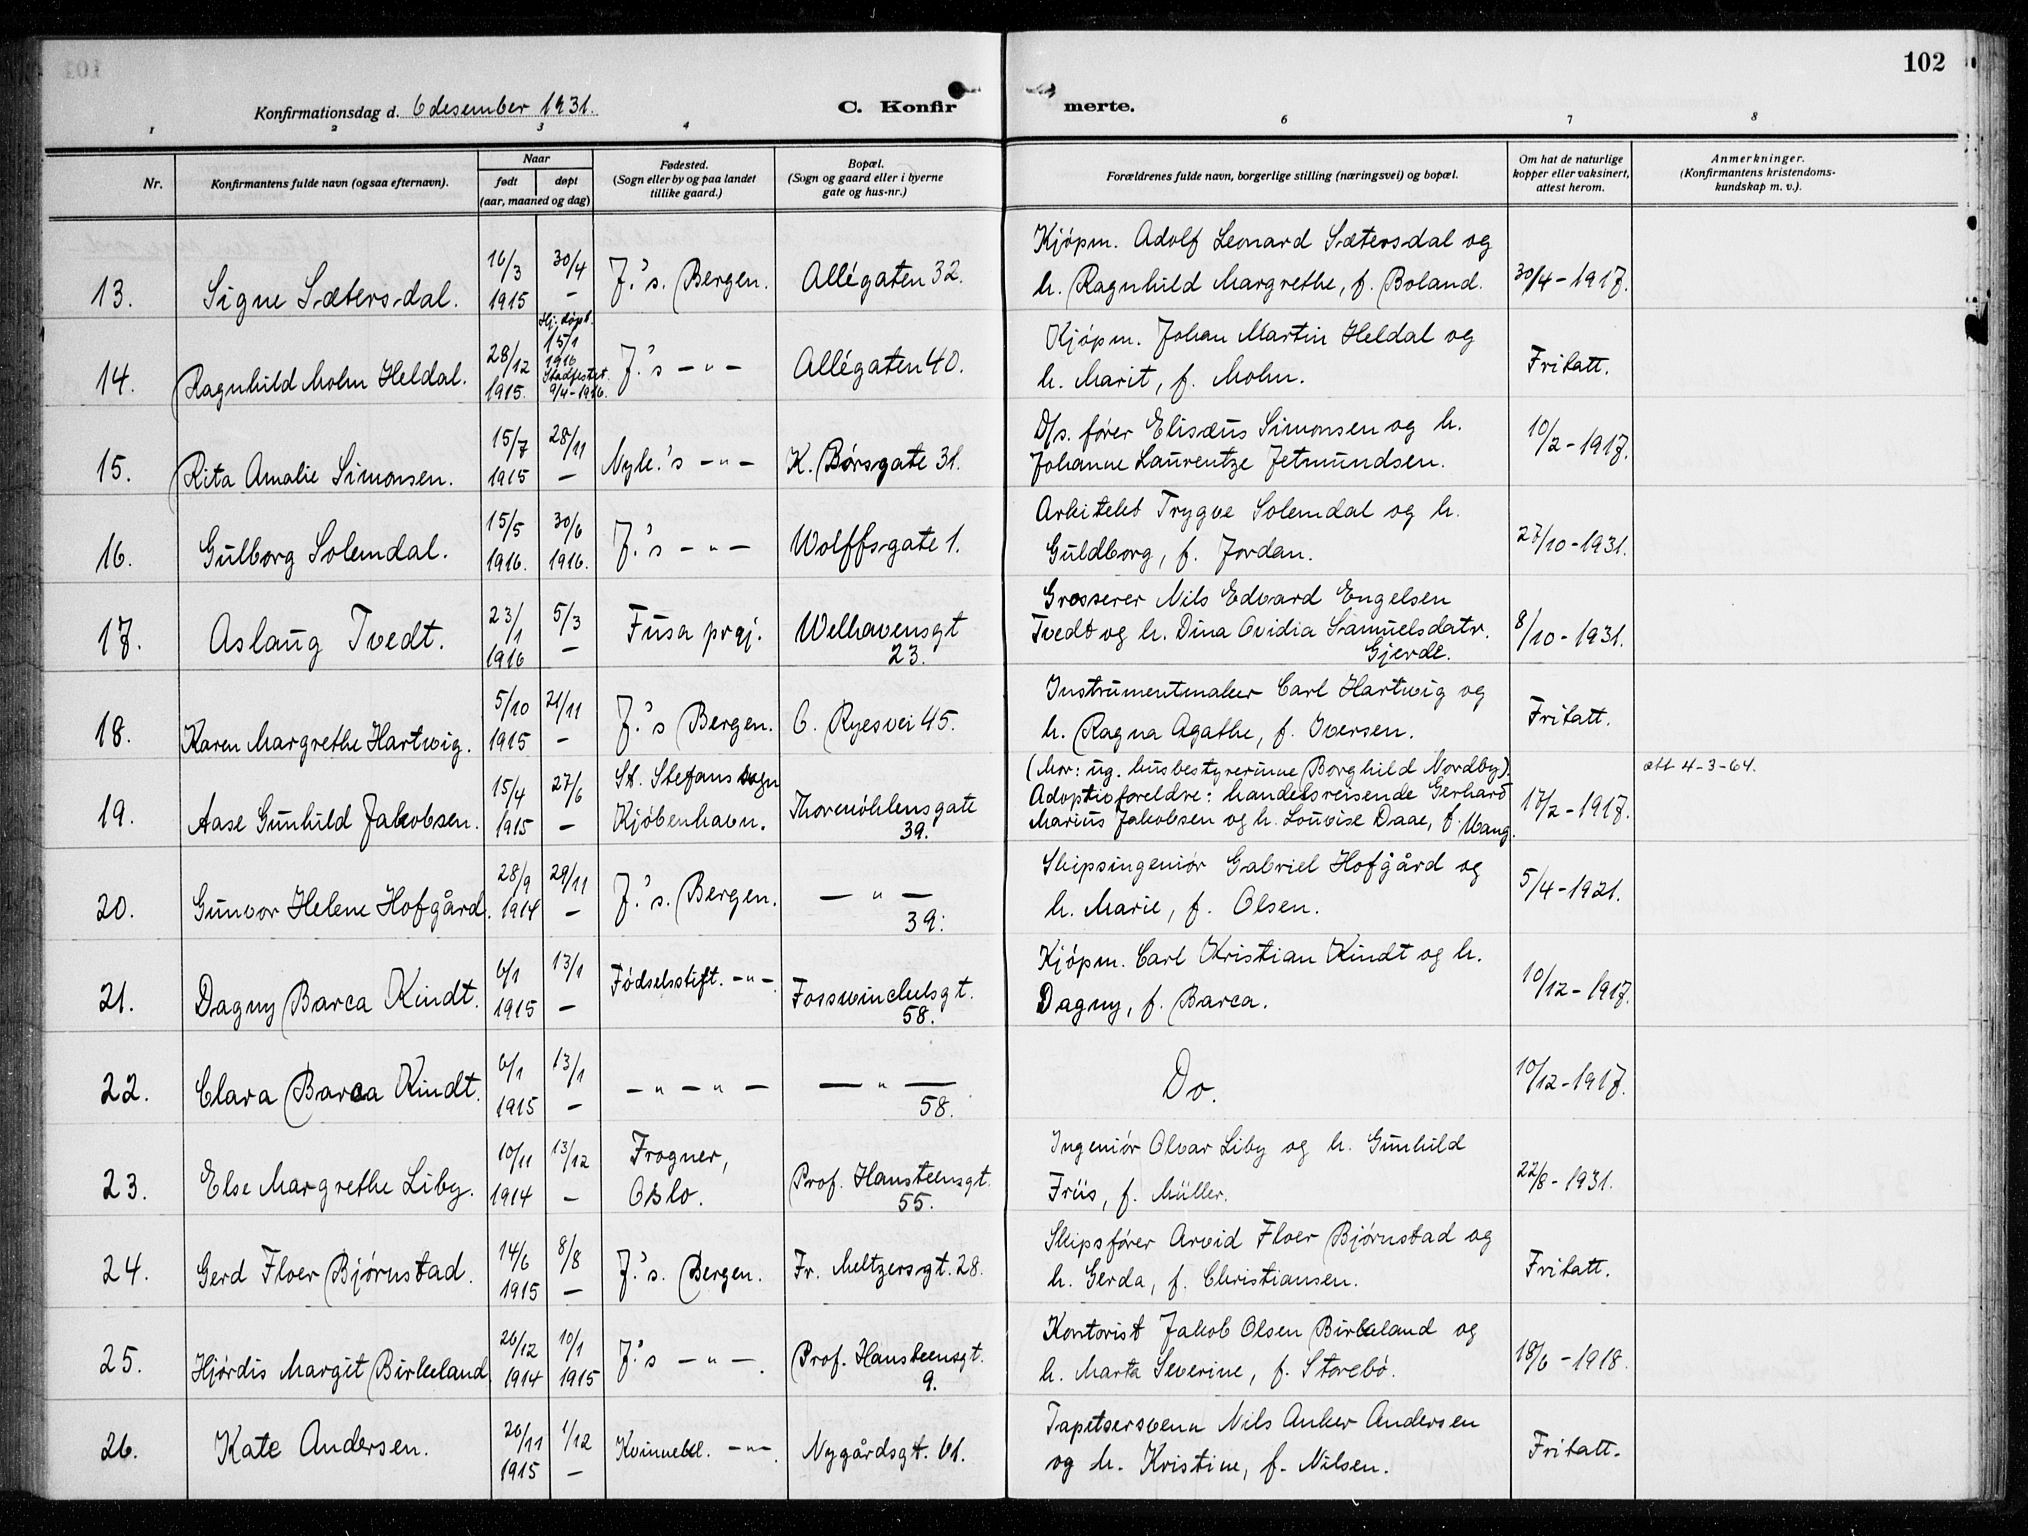 102
Konfirmationsdag d. 6 desember 1931.
C. Konfirmerte.
1 2 3 4 6 7 8
Nr.
Konfirmantens fulde navn (ogsaa efternavn).
Naar
født
døpt
(aar, maaned og dag)
Fødested.
(Sogn eller by og paa landet
tillike gaard.)
Bopæl.
(Sogn og gaard eller i byerne
gate og hus-nr.)
Forældrenes fulde navn, borgerlige stilling (næringsvei) og bopæl.
Om hat de naturlige
kopper eller vaksinert,
attest herom.
Anmerkninger.
(Konfirmantens kristendoms-
kundskap m. v.).
13. Signe Sætersdal. 16/3 1915 30/4 — J.'s. Bergen. Allégaten 32.
Kjøpm. Adolf Leonard Sætersdal og
h. Ragnhild Margrethe, f. Boland. 30/4-1917.
14. Ragnhild Mohn Heldal. 28/12 1915. Hj. døpt. 15/1 1916 Stadfestet. 9/4-1916. J.'s — " — Allégaten 40.
Kjøpm. Johan Martin Heldal og
h. Marit, f. Mohn. Fritatt.
15. Rita Amalie Simonsen. 15/7 1915 28/11 — Nyk.'s — " — K. Børsgate 31.
D/s. fører Elisæus Simonsen og h.
Johanne Laurentze Jetmundsen. 10/2-1917.
16. Gulborg Solemdal. 15/5 1916. 30/6 1916. J.'s — " — Wolffsgate 1.
Arkitekt Trygve Solemdal og h.
Guldborg, f. Jordan. 27/10-1931.
17. Aslaug Tvedt. 23/1 1916 5/3 — Fusa prgj. Welhavensgt
23.
Grosserer Nils Edvard Engelsen
Tvedt og h. Dina Ovidia Samuelsdatr.
Gjerde. 8/10-1931.
18. Karen Margrethe Hartwig. 5/10 1915 21/11 — J.'s Bergen. O. Ryesvei 45.
Instrumentmaker Carl Hartwig og
h. Ragna Agathe, f. Iversen. Fritatt.
19. Aase Gunhild Jakobsen. 15/4 1915 27/6 — St. Stefans sogn
Kjøbenhavn. Thormøhlensgate
39.
(Mor: ug. husbestyrerinne Borghild Nordby).
Adoptivforeldre: handelsreisende Gerhard
Marius Jakobsen og h. Louvise Daae, f. Mang. 17/2-1917. att 4-3-64.
20. Gunvor Helene Hofgård. 28/9 1914 29/11 — J.'s. Bergen. — " —
39.
Skipsingeniør Gabriel Hofgård og
h. Marie, f. Olsen. 5/4-1921.
21. Dagny Barca Kindt. 6/1 1915 13/1 — Fødselsstift. — " —. Fosswinckelsgt.
58.
Kjøpm. Carl Kristian Kindt og h.
Dagny, f. Barca. 10/12-1917.
22. Clara Barca Kindt. 6/1 1915 13/1 — — " — " — — " —
58.
Do. 10/12-1917.
23. Else Margrethe Liby. 10/11 1914 13/12 — Frogner,
Oslo. Prof. Hansteensgt.
55.
Ingeniør Olvar Liby og h. Gunhild
Friis, f. Müller. 22/8-1931.
24. Gerd Floer Bjørnstad. 14/6 1915 8/8 — J.'s. Bergen. Fr. Meltzersgt. 28.
Skipsfører Arvid Floer Bjørnstad og
h. Gerda, f. Christiansen. Fritatt.
25. Hjørdis Margit Birkeland 26/12 1914 10/1 1915 J.'s — " —. Prof. Hansteensgt.
9.
Kontorist Jakob Olsen Birkeland og
h. Marta Severine, f. Storebø. 18/6-1918.
26. Kate Andersen. 26/11 1915 1/12 — Kvinnekl. — " —. Nygårdsgt. 61.
Tapetsersvenn Nils Anker Andersen
og h. Kristine, f. Nilsen. Fritatt.